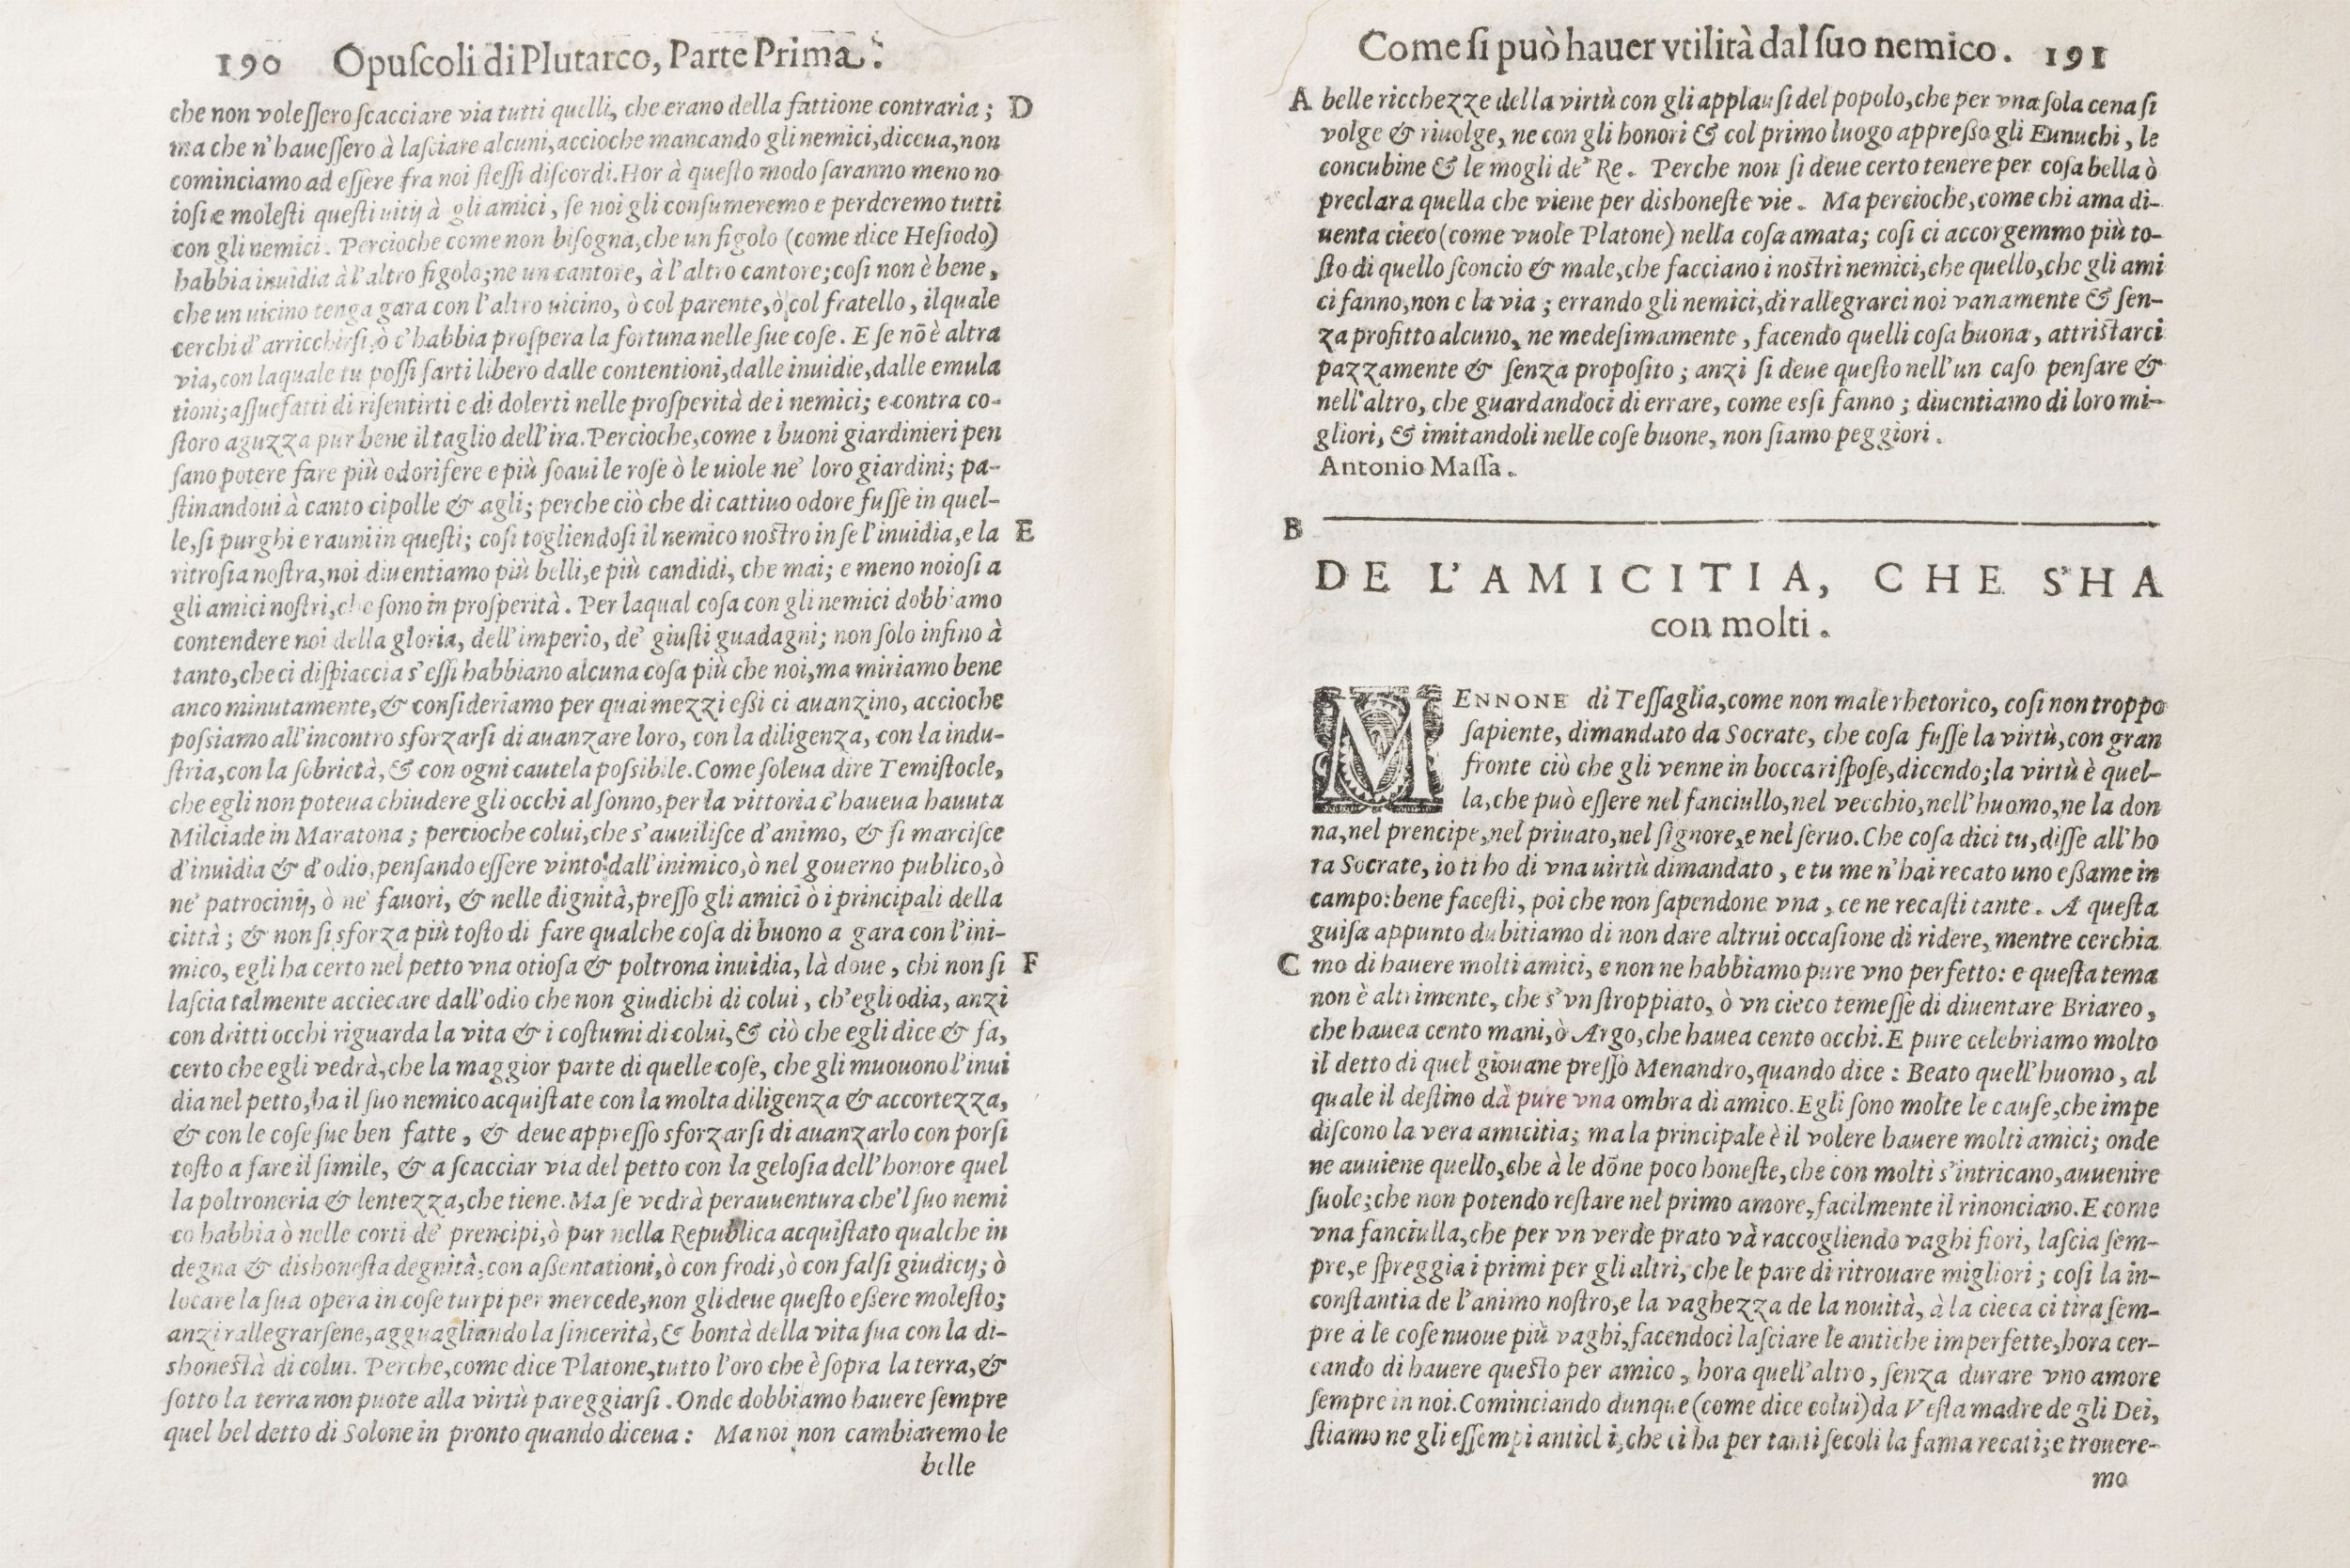 190 Opuſcoli di Plutarco, Parte Prima.
che non voleſſero ſcacciare via tutti quelli, che erano della fattione contraria; D
ma che n'haueſſero à laſciare alcuni, accioche mancando gli nemici, diceua, non
cominciamo ad eſſere fra noi ſteſſi diſcordi. Hor à queſto modo ſaranno meno no
ioſi e moleſti queſti uitij à gli amici, ſe noi gli conſumeremo e perderemo tutti
con gli nemici. Percioche come non biſogna, che un figolo (come dice Heſiodo)
habbia inuidia à l'altro figolo; ne un cantore, à l'altro cantore; coſi non è bene,
che un uicino tenga gara con l'altro uicino, ò col parente, ò col fratello, ilquale
cerchi d'arricchirſi, ò c'habbia proſpera la fortuna nelle ſue coſe. E ſe nō è altra
via, con laquale tu poſſi farti libero dalle contentioni, dalle inuidie, dalle emula
tioni; aſſuefatti di riſentirti e di dolerti nelle proſperità de i nemici; e contra co-
ſtoro aguzza pur bene il taglio dell'ira. Percioche, come i buoni giardinieri pen
ſano potere fare più odorifere e più ſoaui le roſe ò le uiole ne' loro giardini; pa-
ſtinandoui à canto cipolle & agli; perche ciò che di cattiuo odore fuſſe in quel-
le, ſi purghi e rauni in queſti; coſi togliendoſi il nemico noſtro in ſe l'inuidia, e la E
ritroſia noſtra, noi diuentiamo più belli, e più candidi, che mai; e meno noioſi a
gli amici noſtri, che ſono in proſperità. Per laqual coſa con gli nemici dobbiamo
contendere noi della gloria, dell'imperio, de' giuſti guadagni; non ſolo infino à
tanto, che ci diſpiaccia s'eſſi habbiano alcuna coſa più che noi, ma miriamo bene
anco minutamente, & conſideriamo per quai mezzi eßi ci auanzino, accioche
poſsiamo all'incontro sforzarſi di auanzare loro, con la diligenza, con la indu-
ſtria, con la ſobrietà, & con ogni cautela poſsibile. Come ſoleua dire Temiſtocle,
che egli non poteua chiudere gli occhi al ſonno, per la vittoria c'haueua hauuta
Milciade in Maratona; percioche colui, che s'auuiliſce d'animo, & ſi marciſce
d'inuidia & d'odio, penſando eſſere vinto dall'inimico, ò nel gouerno publico, ò
ne' patrocinij, ò ne' fauori, & nelle dignità, preſſo gli amici ò i principali della
città; & non ſi sforza più toſto di fare qualche coſa di buono a gara con l'ini-
mico, egli ha certo nel petto vna otioſa & poltrona inuidia, là doue, chi non ſi F
laſcia talmente acciecare dall'odio che non giudichi di colui, ch'egli odia, anzi
con dritti occhi riguarda la vita & i coſtumi di colui, & ciò che egli dice & fa,
certo che egli vedrà, che la maggior parte di quelle coſe, che gli muouono l'inui
dia nel petto, ha il ſuo nemico acquiſtate con la molta diligenza & accortezza,
& con le coſe ſue ben fatte, & deue appreſſo sforzarſi di auanzarlo con porſi
toſto a fare il ſimile, & a ſcacciar via del petto con la geloſia dell'honore quel
la poltroneria & lentezza, che tiene. Ma ſe vedrà perauuentura che'l ſuo nemi
co habbia ò nelle corti de' prencipi, ò pur nella Republica acquiſtato qualche in
degna & dishoneſta degnità, con aßentationi, ò con frodi, ò con falſi giudicij; ò
locare la ſua opera in coſe turpi per mercede, non gli deue queſto eßere moleſto;
anzi rallegrarſene, agguagliando la ſincerità, & bontà della vita ſua con la di-
shoneſtà di colui. Perche, come dice Platone, tutto l'oro che è ſopra la terra, &
ſotto la terra non puote alla virtù pareggiarſi. Onde dobbiamo hauere ſempre
quel bel detto di Solone in pronto quando diceua: Ma noi non cambiaremo le
belle
Come ſi può hauer vtilità dal ſuo nemico. 191
A belle ricchezze della virtù con gli applauſi del popolo, che per vna ſola cena ſi
volge & riuolge, ne con gli honori & col primo luogo appreßo gli Eunuchi, le
concubine & le mogli de' Re. Perche non ſi deue certo tenere per coſa bella ò
preclara quella che viene per dishoneſte vie. Ma percioche, come chi ama di-
uenta cieco (come vuole Platone) nella coſa amata; coſi ci accorgemmo più to-
ſto di quello ſconcio & male, che facciano i noſtri nemici, che quello, che gli ami
ci fanno, non e la via; errando gli nemici, di rallegrarci noi vanamente & ſen-
za profitto alcuno, ne medeſimamente, facendo quelli coſa buona, attriſtarci
pazzamente & ſenza propoſito; anzi ſi deue queſto nell'un caſo penſare &
nell'altro, che guardandoci di errare, come eſsi fanno; diuentiamo di loro mi-
gliori, & imitandoli nelle coſe buone, non ſiamo peggiori.
Antonio Maſſa.
B
DE L'AMICITIA, CHE S'HA
con molti.
MENNONE di Teſſaglia, come non male rhetorico, coſi non troppo
ſapiente, dimandato da Socrate, che coſa fuſſe la virtù, con gran
fronte ciò che gli venne in bocca riſpoſe, dicendo; la virtù è quel-
la, che può eſſere nel fanciullo, nel vecchio, nell'huomo, ne la don
na, nel prencipe, nel priuato, nel ſignore, e nel ſeruo. Che coſa dici tu, diſſe all'ho
ra Socrate, io ti ho di vna uirtù dimandato, e tu me n'hai recato uno eßame in
campo: bene faceſti, poi che non ſapendone vna, ce ne recaſti tante. A queſta
guiſa appunto dubitiamo di non dare altrui occaſione di ridere, mentre cerchia
C mo di hauere molti amici, e non ne habbiamo pure vno perfetto: e queſta tema
non è altrimente, che s'vn ſtroppiato, ò vn cieco temeſſe di diuentare Briareo,
che hauea cento mani, ò Argo, che hauea cento occhi. E pure celebriamo molto
il detto di quel giouane preſſo Menandro, quando dice: Beato quell'huomo, al
quale il deſtino dà pure vna ombra di amico. Egli ſono molte le cauſe, che impe
diſcono la vera amicitia; ma la principale è il volere hauere molti amici; onde
ne auuiene quello, che à le dōne poco honeſte, che con molti s'intricano, auuenire
ſuole; che non potendo reſtare nel primo amore, facilmente il rinonciano. E come
vna fanciulla, che per vn verde prato và raccogliendo vaghi fiori, laſcia ſem-
pre, e ſpreggia i primi per gli altri, che le pare di ritrouare migliori; coſi la in-
conſtantia de l'animo noſtro, e la vaghezza de la nouità, à la cieca ci tira ſem-
pre à le coſe nuoue più vaghi, facendoci laſciare le antiche imperfette, hora cer-
cando di hauere queſto per amico, hora quell'altro, ſenza durare vno amore
ſempre in noi. Cominciando dunque (come dice colui) da Veſta madre de gli Dei,
ſtiamo ne gli eſſempi antichi, che ci ha per tanti ſecoli la fama recati; e trouere-
mo